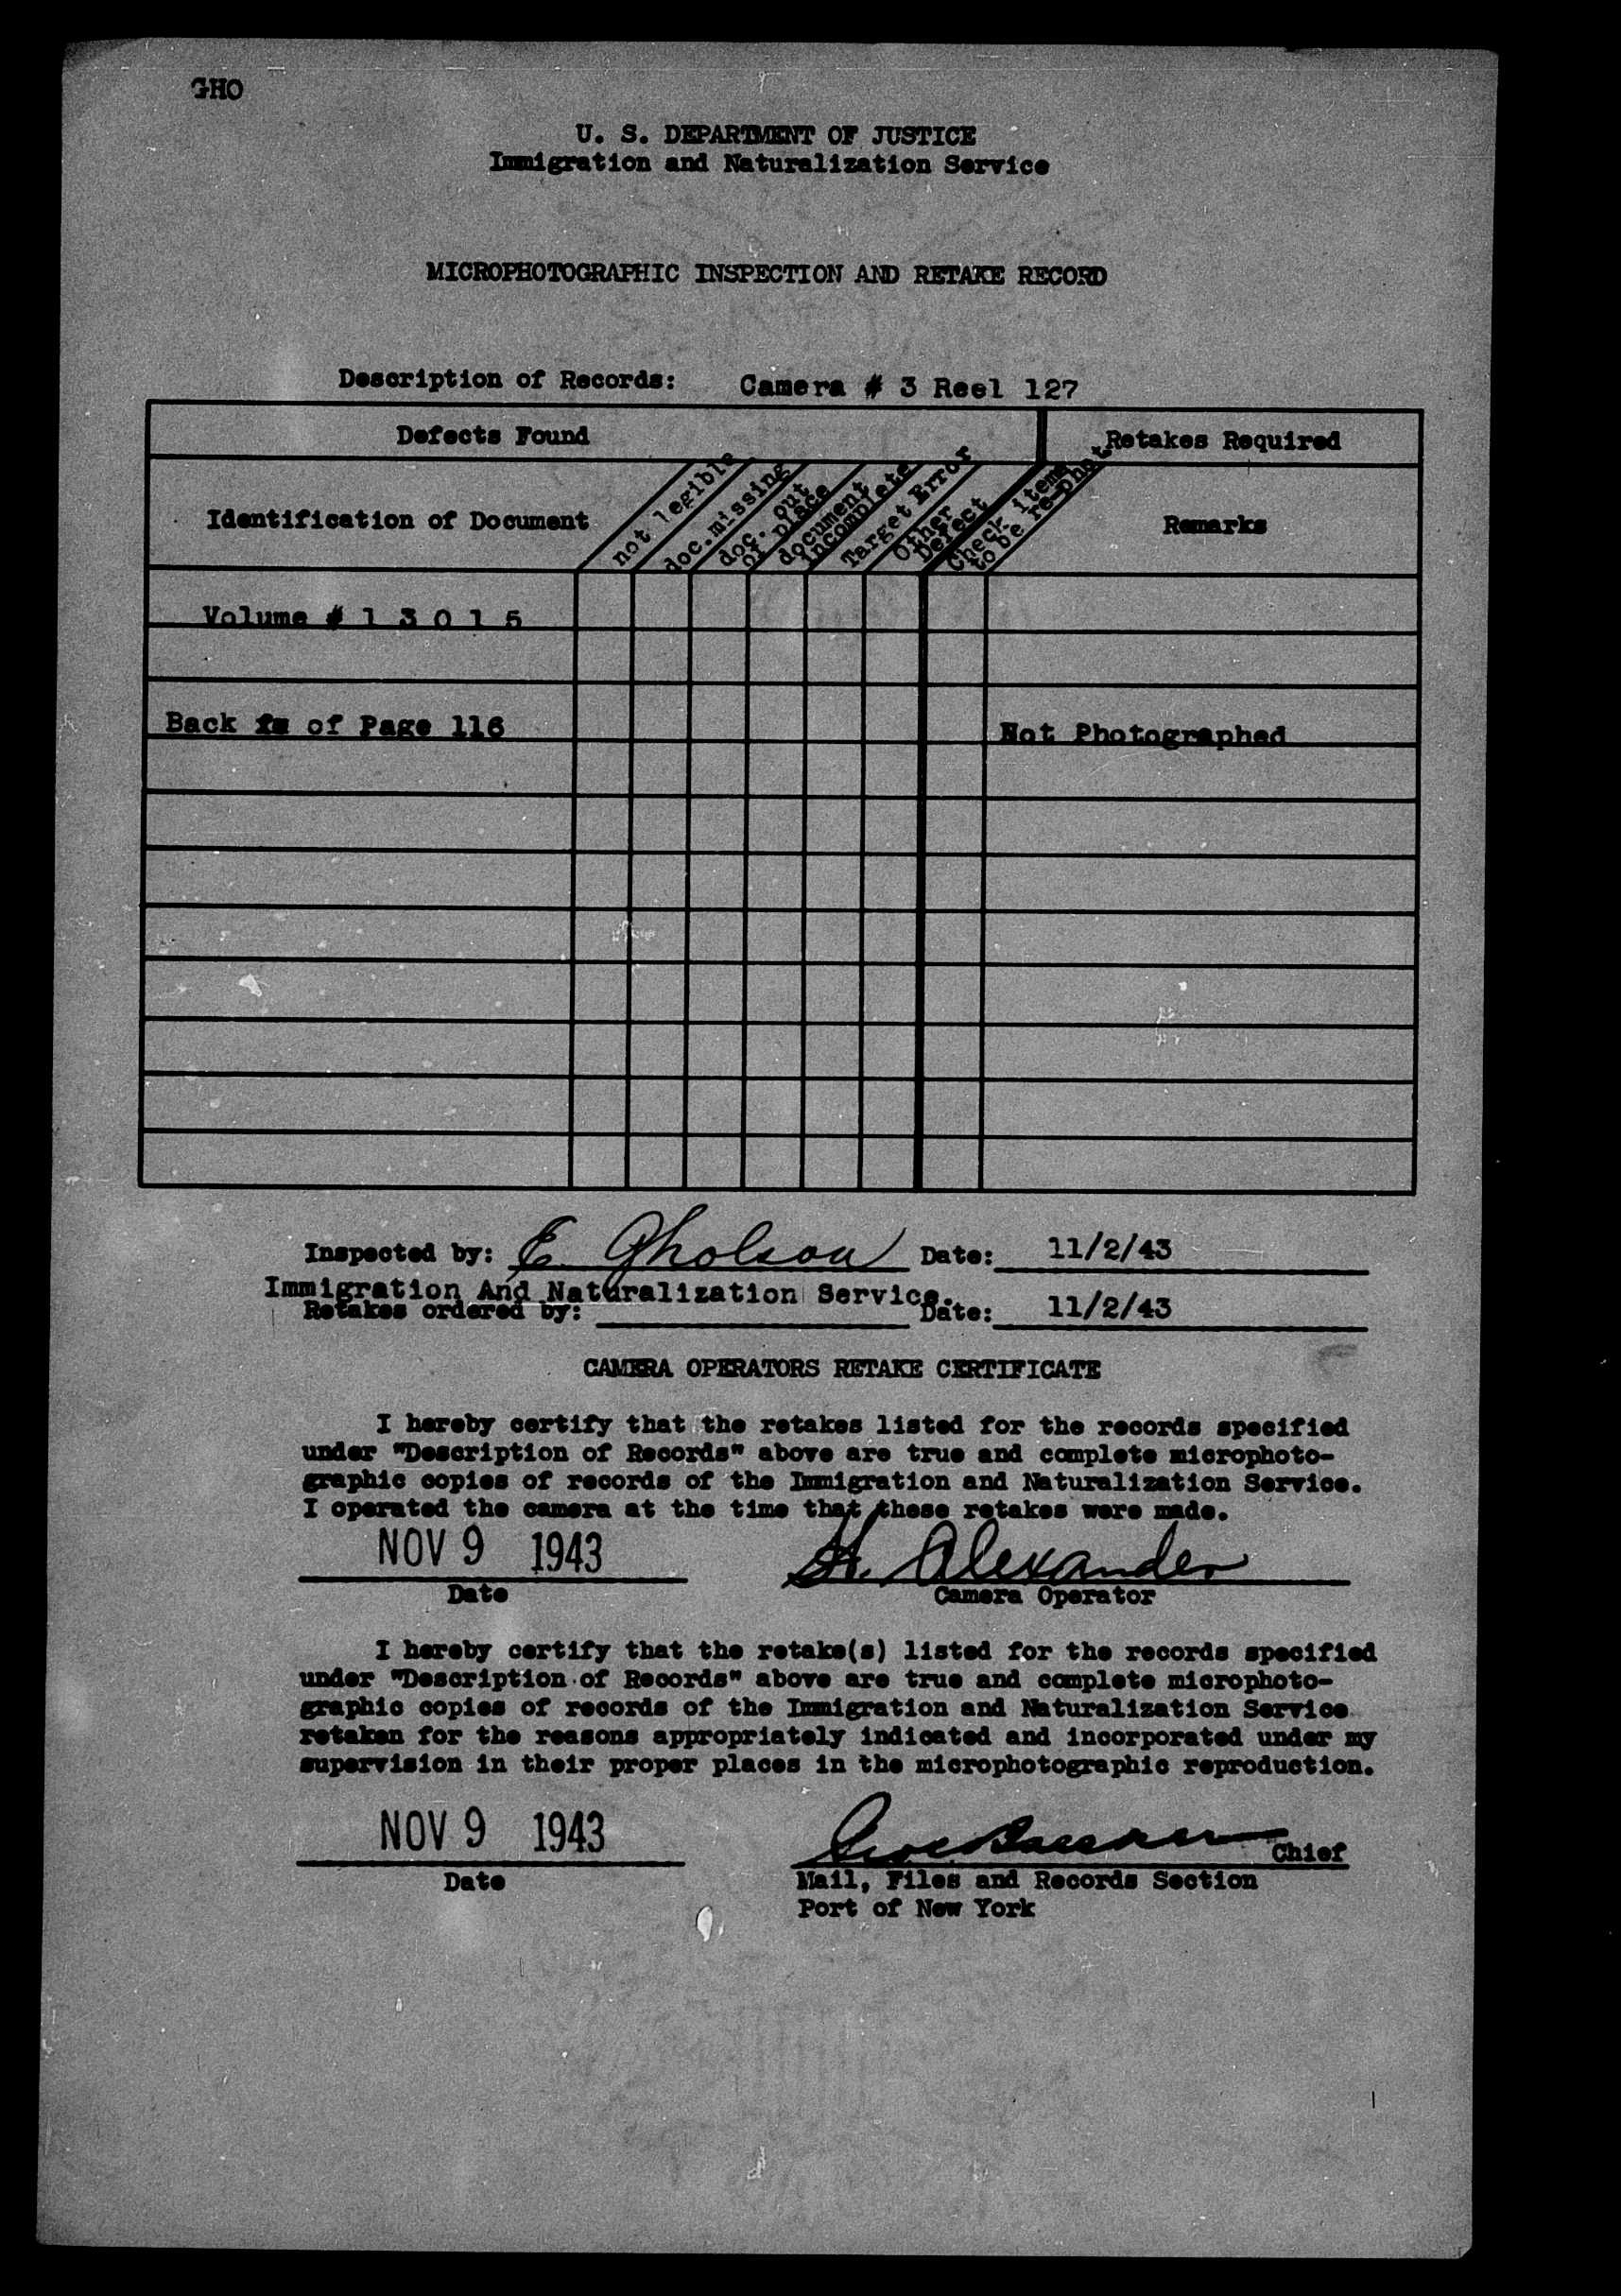 GHO
U. S. DEPARTMENT OF JUSTICE
Immigration and Naturalization Service
MICROPHOTOGRAPHIC INSPECTION AND RETAKE RECORD
Description of Records: Camera # 3 Reel 127
Defects Found
Retakes Required
Identification of Document
not legible
doc.missing
doc. out
of place
document
incomplete
Target Error
Other
Defect
Check items
to be re-phot.
Remarks
Volume # 1 3 0 1 5
Back of Page 116
Not Photographed
Inspected by: E. Gholson Date: 11/2/43
Immigration And Naturalization Service.
Retakes ordered by: Date: 11/2/43
CAMERA OPERATORS RETAKE CERTIFICATE
I hereby certify that the retakes listed for the records specified
under "Description of Records" above are true and complete microphoto-
graphic copies of records of the Immigration and Naturalization Service.
I operated the camera at the time that these retakes were made.
NOV 9 1943
H. Alexander
Date
Camera Operator
I hereby certify that the retake(s) listed for the records specified
under "Description of Records" above are true and complete microphoto-
graphic copies of records of the Immigration and Naturalization Service
retaken for the reasons appropriately indicated and incorporated under my
supervision in their proper places in the microphotographic reproduction.
NOV 9 1943
Chief
Date
Mail, Files and Records Section
Port of New York